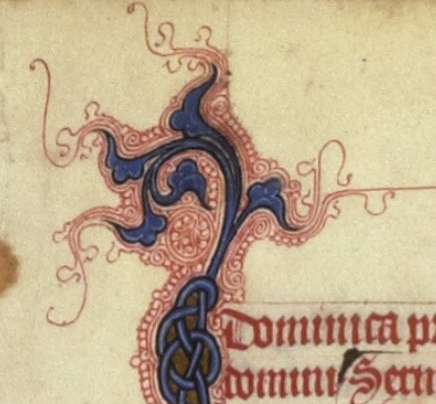 Dominica pr
domini Secu